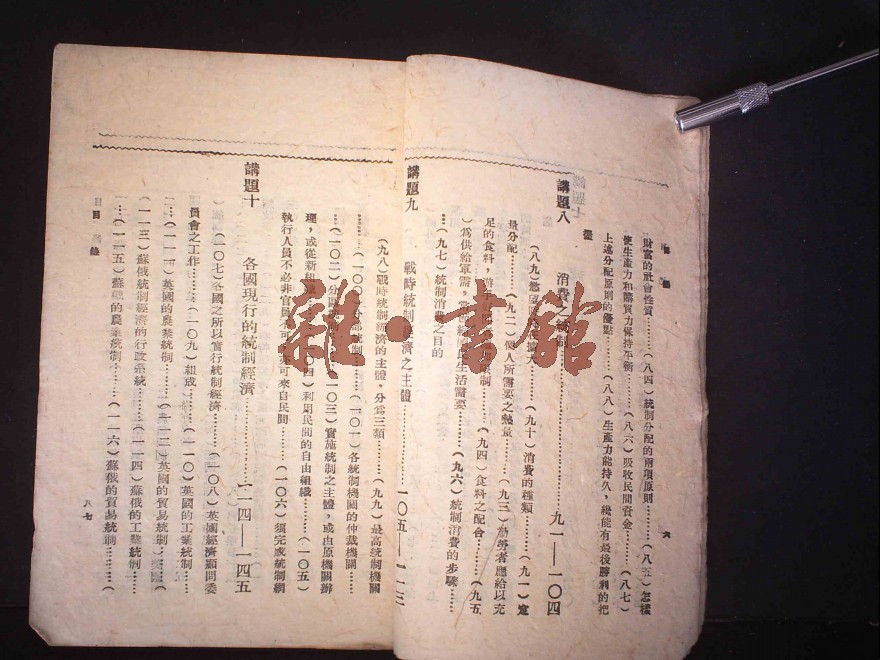 目錄
六
財富的社會性質………(八四)統制分配的兩項原則………(八五)怎樣
使生產力和購買力保持平衡………(八六)吸收民間資金………(八七)
上述分配原則的優點………(八八)生產力能持久，纔能有最後勝利的把
講題八　消費之統制………九一—一〇四
(九十)消費的種類………(九一)定
量分配………(九二)個人所需要之熱量………(九三)勞勞者應給以充
足的食料，
(九四)食料之配合………(九五
)為供給軍需，
民生活需要………(九六)統制消費的步驟………
(九七)統制消費之目的
講題九　戰時統制經濟之主體………一〇五—一一三
(九八)戰時統制經濟的主體，分為三類………(九九)最高統制機關
………(一〇〇)分部統制………(一〇一)各統制機關的仲裁機關………
………(一〇二)分區
(一〇三)實施統制之主體，或由原機關辦
理，或從新組
(一〇四)利用民間的自由組織………(一〇五)
執行人員不必非官員不可，亦可來自民間………(一〇六)須完成統制網
講題十　各國現行的統制經濟………一一四—一四五
(一〇七)各國之所以實行統制經濟………(一〇八)英國經濟顧問委
員會之工作………(一〇九)組成………(一一〇)英國的工業統制………
………(一一一)英國的農業統制………(一一二)英國的貿易統制………(
一一三)蘇俄統制經濟的行政系統………(一一四)蘇俄的工業統制………
………(一一五)蘇俄的農業統制………(一一六)蘇俄的貿易統制………(
目錄
八七
雜·書館